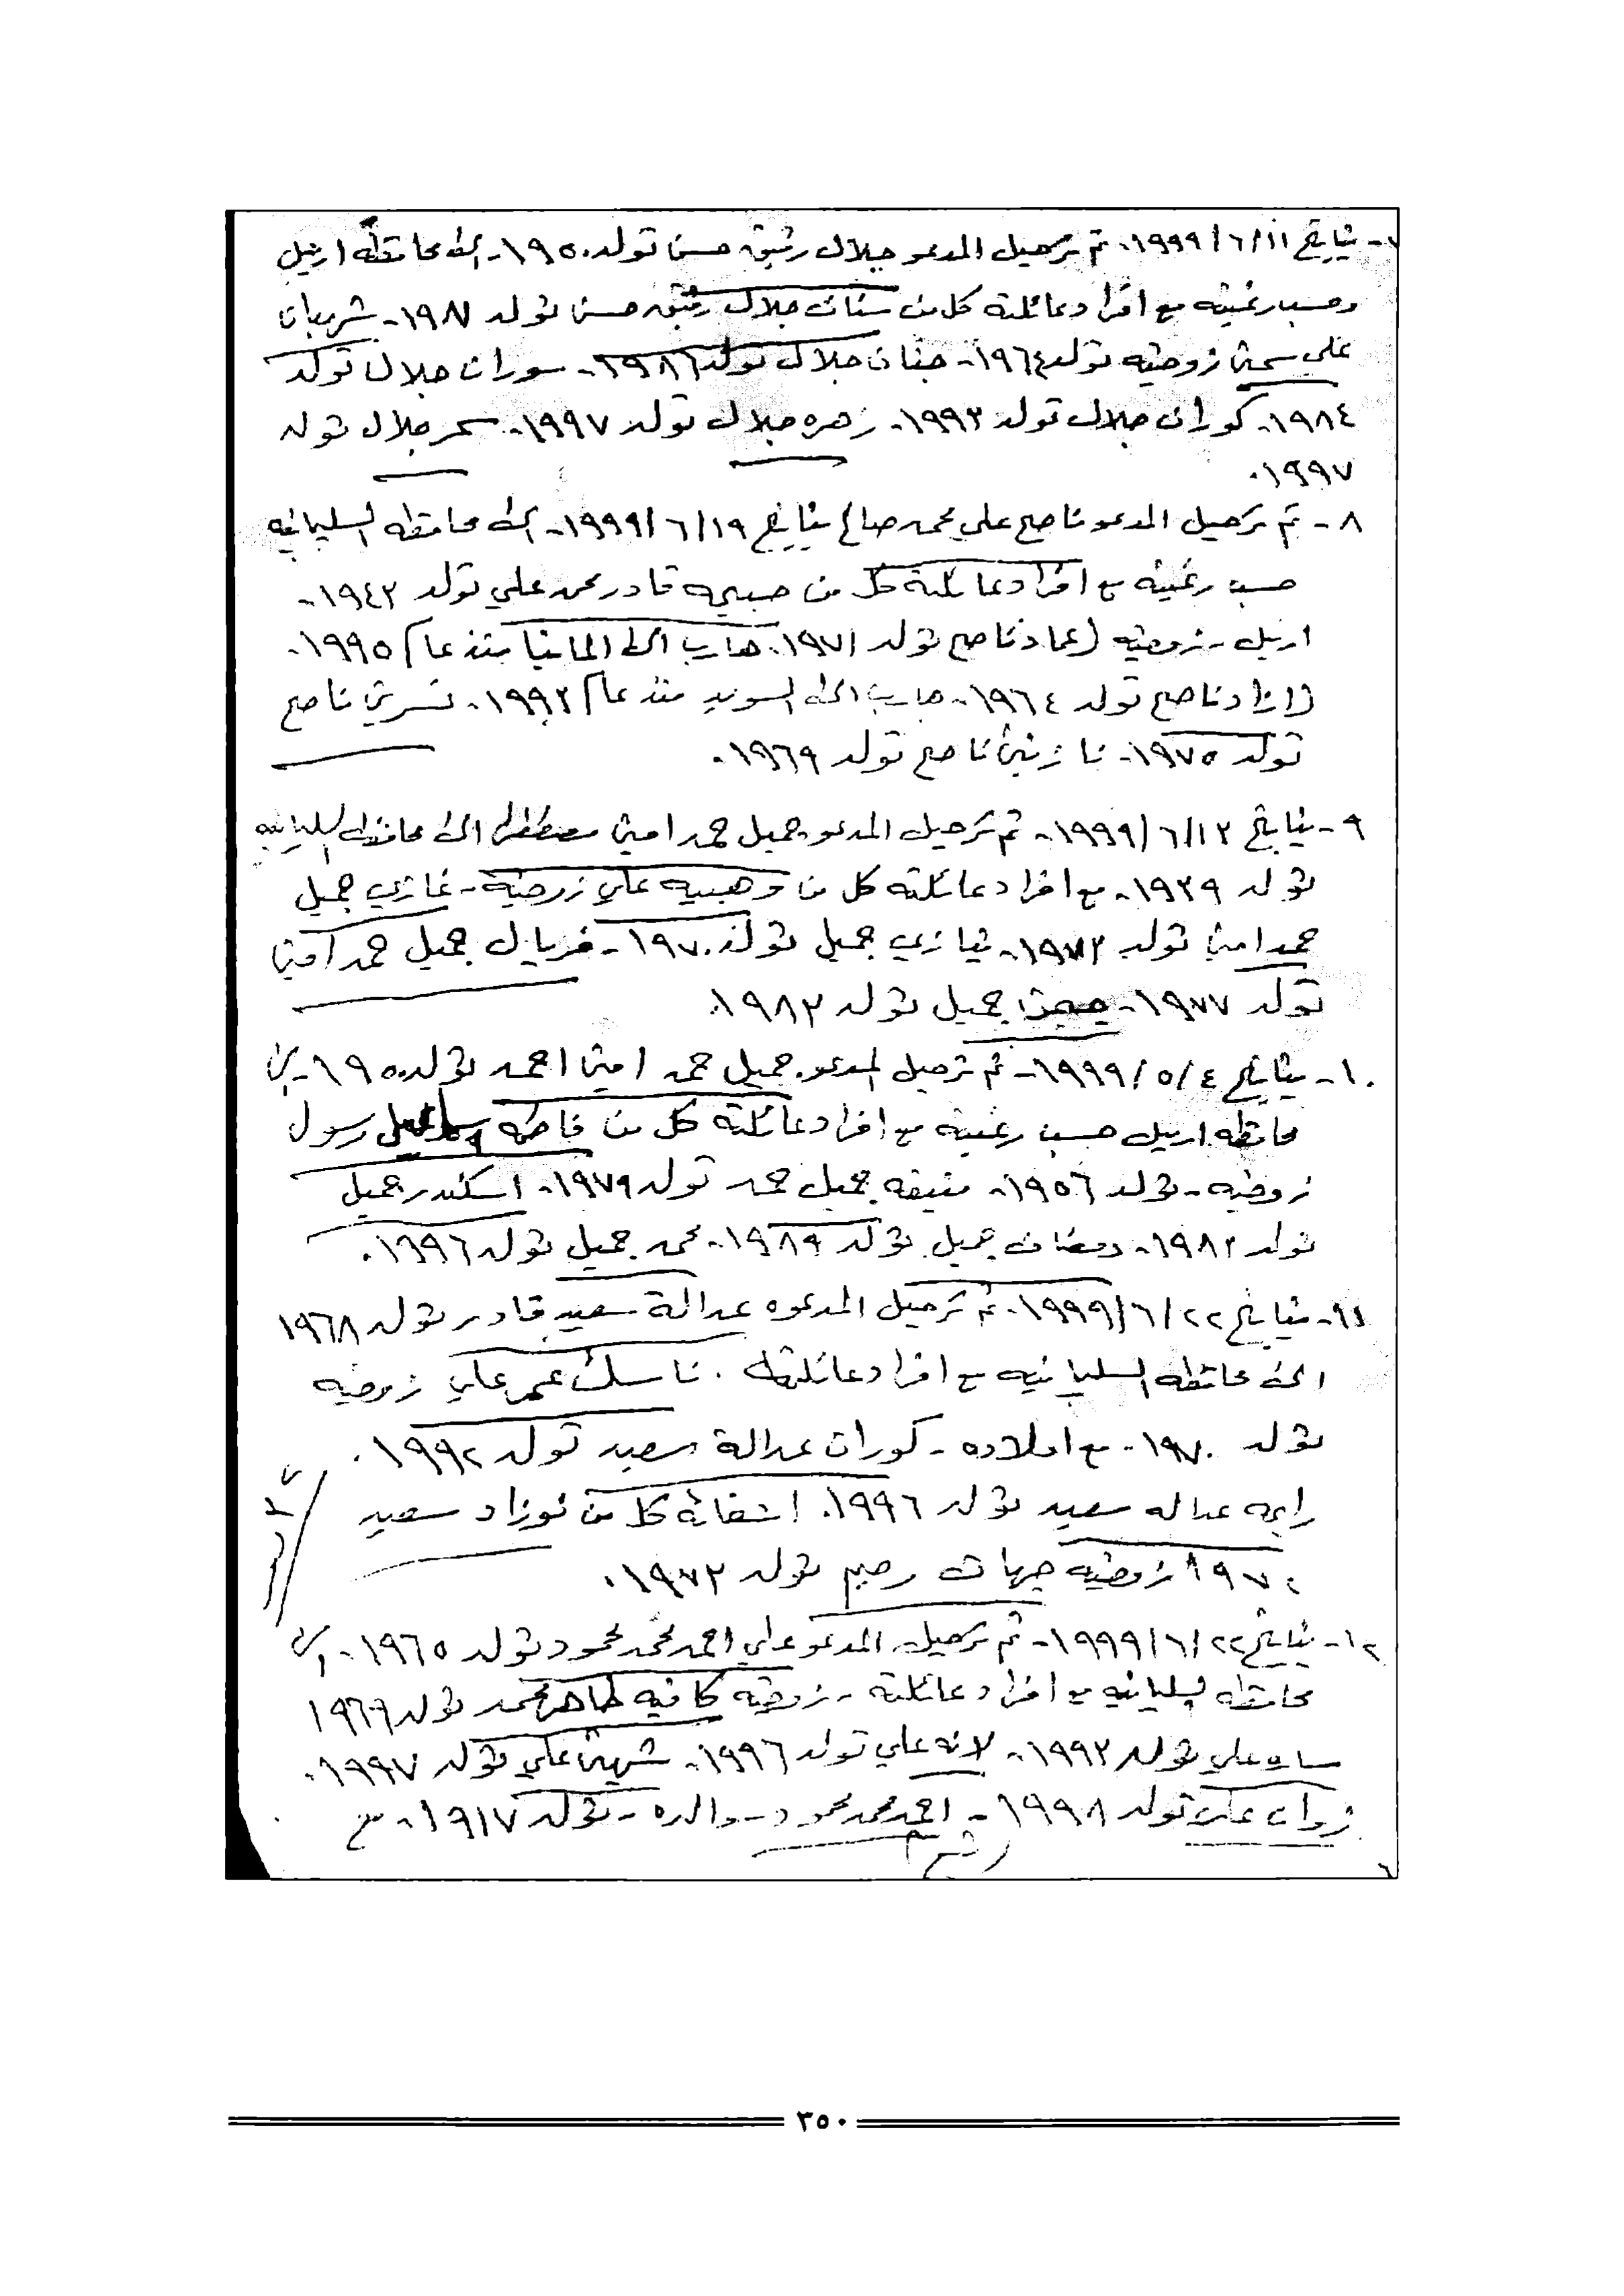 ٧- بتاريخ ١١/ ٦/ ١٩٩٩. تم ترحيل المدعو جلال رفيق حسن تولد ١٩٥٠- الى محافظة اربيل
وحسب رغبته مع افراد عائلته كل من سنان جلال رفيق حسن تولد ١٩٨٧- شهربان
علي سمين زوجته تولد ١٩٦٤- جنان جلال تولد ١٩٨٦- سوران جلال تولد
١٩٨٤- كوران جلال تولد ١٩٩٣- زهره جلال تولد ١٩٩٧- سحر جلال تولد
١٩٩٧.
٨- تم ترحيل المدعو ناصح علي محمد صالح بتاريخ ١٩/ ٦/ ١٩٩٩- الى محافظه السليمانيه
حسب رغبته مع افراد عائلته كل من صبيحه قادر محمد علي تولد ١٩٤٣-
اربيل - زوجته (عماد ناصح تولد ١٩٧١. هارب الى المانيا منذ عام ١٩٩٥.
(ازاد ناصح تولد ١٩٦٤- هارب الى السويد منذ عام ١٩٩٢- نسرين ناصح
تولد ١٩٧٥- نازنين ناصح تولد ١٩٦٩.
٩- بتاريخ ١٣/ ٦/ ١٩٩٩- تم ترحيل المدعو جميل حمد امين مصطفى الى محافظه السليمانيه
تولد ١٩٣٩- مع افراد عائلته كل من وهبيه علي زوجته - غازي جميل
حمد امين تولد ١٩٧٢- نيازي جميل تولد ١٩٧٠- فريال جميل حمد امين
تولد ١٩٧٧- جميل تولد ١٩٨٣.
١٠- بتاريخ ٤/ ٥/ ١٩٩٩- تم ترحيل المدعو جميل حمد امين احمد تولد ١٩٥٠- الى
محافظه اربيل حسب رغبته مع افراد عائلته كل من فاطمه رسول
زوجته - تولد ١٩٥٦- منيفه جميل حمد تولد ١٩٧٩- اسكندر جميل
تولد ١٩٨٢- رمضان جميل تولد ١٩٨٩- محمد جميل تولد ١٩٩٦.
١١- بتاريخ ٢٢/ ٦/ ١٩٩٩- تم ترحيل المدعوه عدالة سعيد قادر تولد ١٩٦٨
الى محافظه السليمانيه مع افراد عائلته . ناسك عمر علي زوجته
تولد ١٩٧٠- مع اولاده - كوران عدالة سعيد تولد ١٩٩٢.
رابحه عداله سعيد تولد ١٩٩٦. اشقائه كل من نوزاد سعيد
١٩٧٠ زوجته جيهان رحيم تولد ١٩٧٣.
١٢- بتاريخ ٢٢/ ٦/ ١٩٩٩- تم ترحيل المدعو علي احمد محمد محمود تولد ١٩٦٥- الى
محافظه السليمانيه مع افراد عائلته - زوجته كافيه طاهر محمد تولد ١٩٦٩
علي تولد ١٩٩٣- لانه علي تولد ١٩٩٦- شهين علي تولد ١٩٩٧.
علي تولد ١٩٩٨- احمد محمد محمود - والده - تولد ١٩١٧- مع
٣٥٠